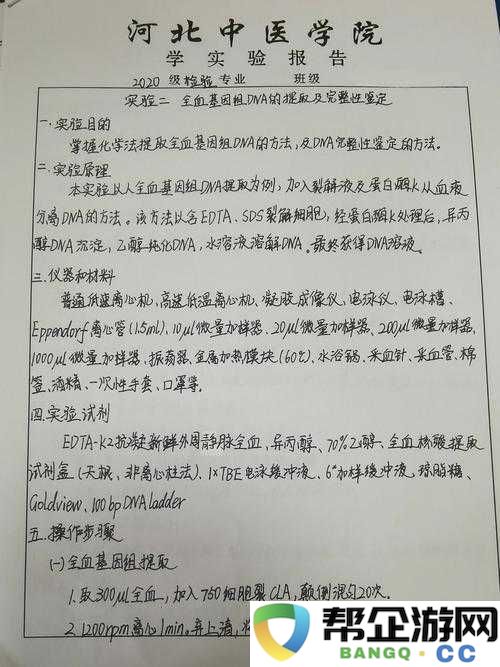 河北中医学院
学实验报告
2020 级检验专业 班级
实验二 全血基因组DNA的提取及完整性鉴定
一.实验目的
掌握化学法提取全血基因组DNA的方法,及DNA完整性鉴定的方法。
二.实验原理
本实验以人全血基因组DNA提取为例,加入裂解液及蛋白酶K从血液
分离DNA的方法。该方法以含EDTA、SDS裂解细胞,经蛋白酶K处理后,异丙
醇DNA沉淀,乙醇纯化DNA,水溶液溶解DNA。最终获得DNA溶液。
三.仪器和材料
普通低速离心机、高速低温离心机、凝胶成像仪、电泳仪、电泳槽、
Eppendorf离心管(1.5ml)、10μl微量加样器、20μl微量加样器、200μl微量加样器、
1000μl微量加样器、振荡器、金属加热模块(60℃)、水浴锅、采血针、采血管、棉
签、酒精、一次性手套、口罩等。
四.实验试剂
EDTA-K2抗凝新鲜外周静脉全血、异丙醇、70%乙醇、全血核酸提取
试剂盒(天根、非离心柱法)、1×TBE电泳缓冲液、6*加样缓冲液、琼脂糖、
Goldview、100bp DNA ladder
五.操作步骤
(一)全血基因组提取
1.取300μl全血,加入750细胞裂CLA,颠倒混匀20次。
2.1200rpm离心1min。弃上清,
帮企游网
BANGQ.CC